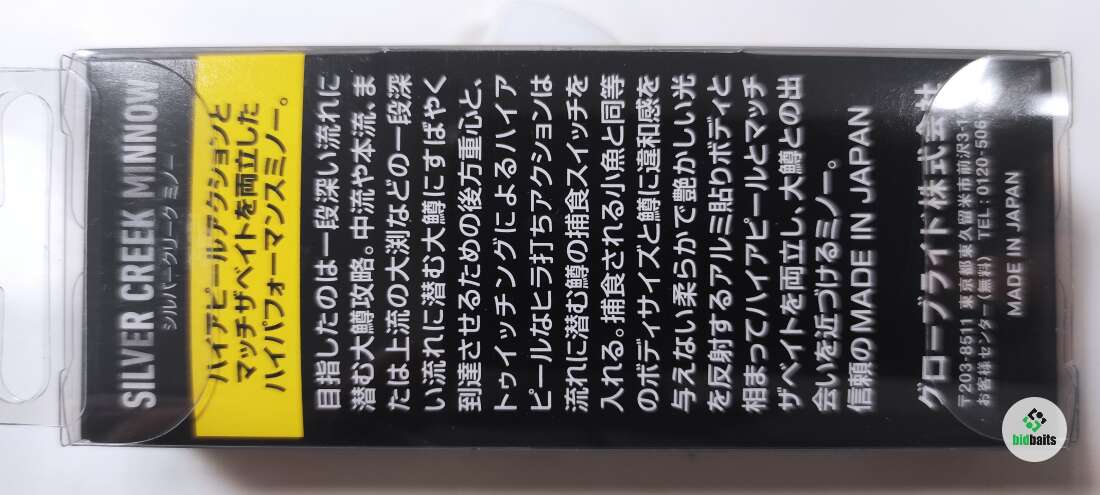 SILVER CREEK MINNOW
シルバークリークミノー
ハイアピールアクションと
マッチザベイトを両立した
ハイパフォーマンスミノー。
目指したのは一段深い流れに
潜む大鱒攻略。中流や本流、ま
たは上流の大渕などの一段深
い流れに潜む大鱒にすばやく
到達させるための後方重心と、
トゥイッチングによるハイア
ピールなヒラ打ちアクションは
流れに潜む鱒の捕食スイッチを
入れる。捕食される小魚と同等
のボディサイズと鱒に違和感を
与えない柔らかで艶かしい光
を反射するアルミ貼りボディと
相まってハイアピールとマッチ
ザベイトを両立し、大鱒との出
会いを近づけるミノー。
信頼のMADE IN JAPAN
グローブライド株式会社
〒203-8511 東京都東久留米市前沢3-1
お客様センター(無料) TEL:0120-506
MADE IN JAPAN
bidbaits